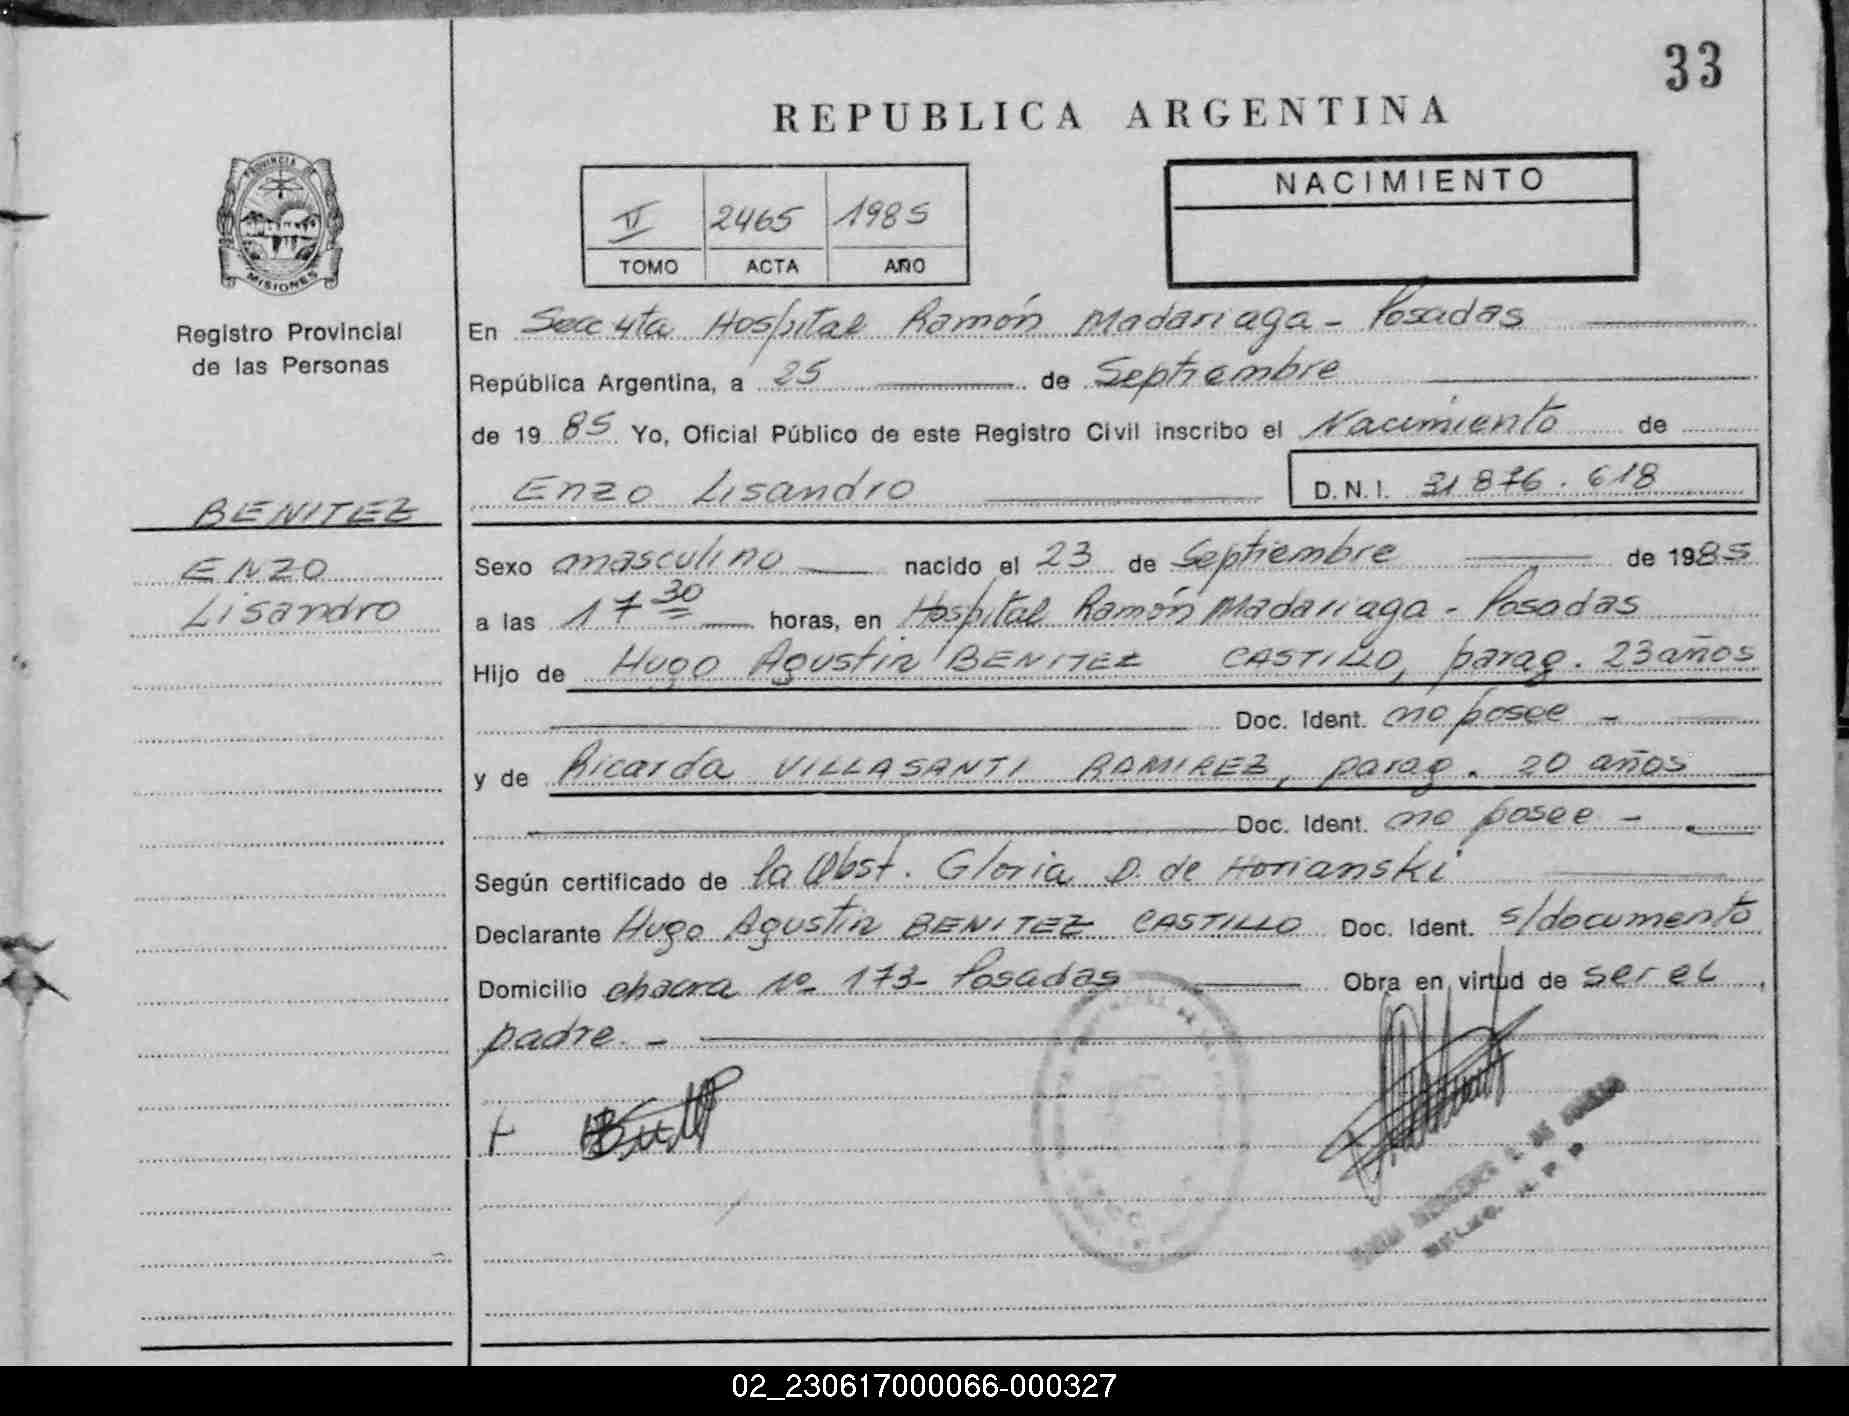 33
REPUBLICA ARGENTINA
PROVINCIA DE
MISIONES
Registro Provincial
de las Personas
II 2465 1985
TOMO ACTA AÑO
NACIMIENTO
En Secc 4ta Hospital Ramón Madariaga - Posadas
República Argentina, a 25 de Septiembre
de 19 85 Yo, Oficial Público de este Registro Civil inscribo el Nacimiento de
Enzo Lisandro D.N.I. 31 876.618
BENITEZ
ENZO
Lisandro
Sexo masculino nacido el 23 de Septiembre de 1985
a las 17 30 horas, en Hospital Ramón Madariaga - Posadas
Hijo de Hugo Agustin BENITEZ CASTILLO, parag. 23 años
Doc. Ident. no posee -
y de Ricarda VILLASANTI RAMIREZ, parag. 20 años
Doc. Ident. no posee -
Según certificado de la Obst. Gloria D. de Horianski
Declarante Hugo Agustin BENITEZ CASTILLO Doc. Ident. s/documento
Domicilio chacra Nº 173- Posadas Obra en virtud de ser el
padre. -
02_230617000066-000327